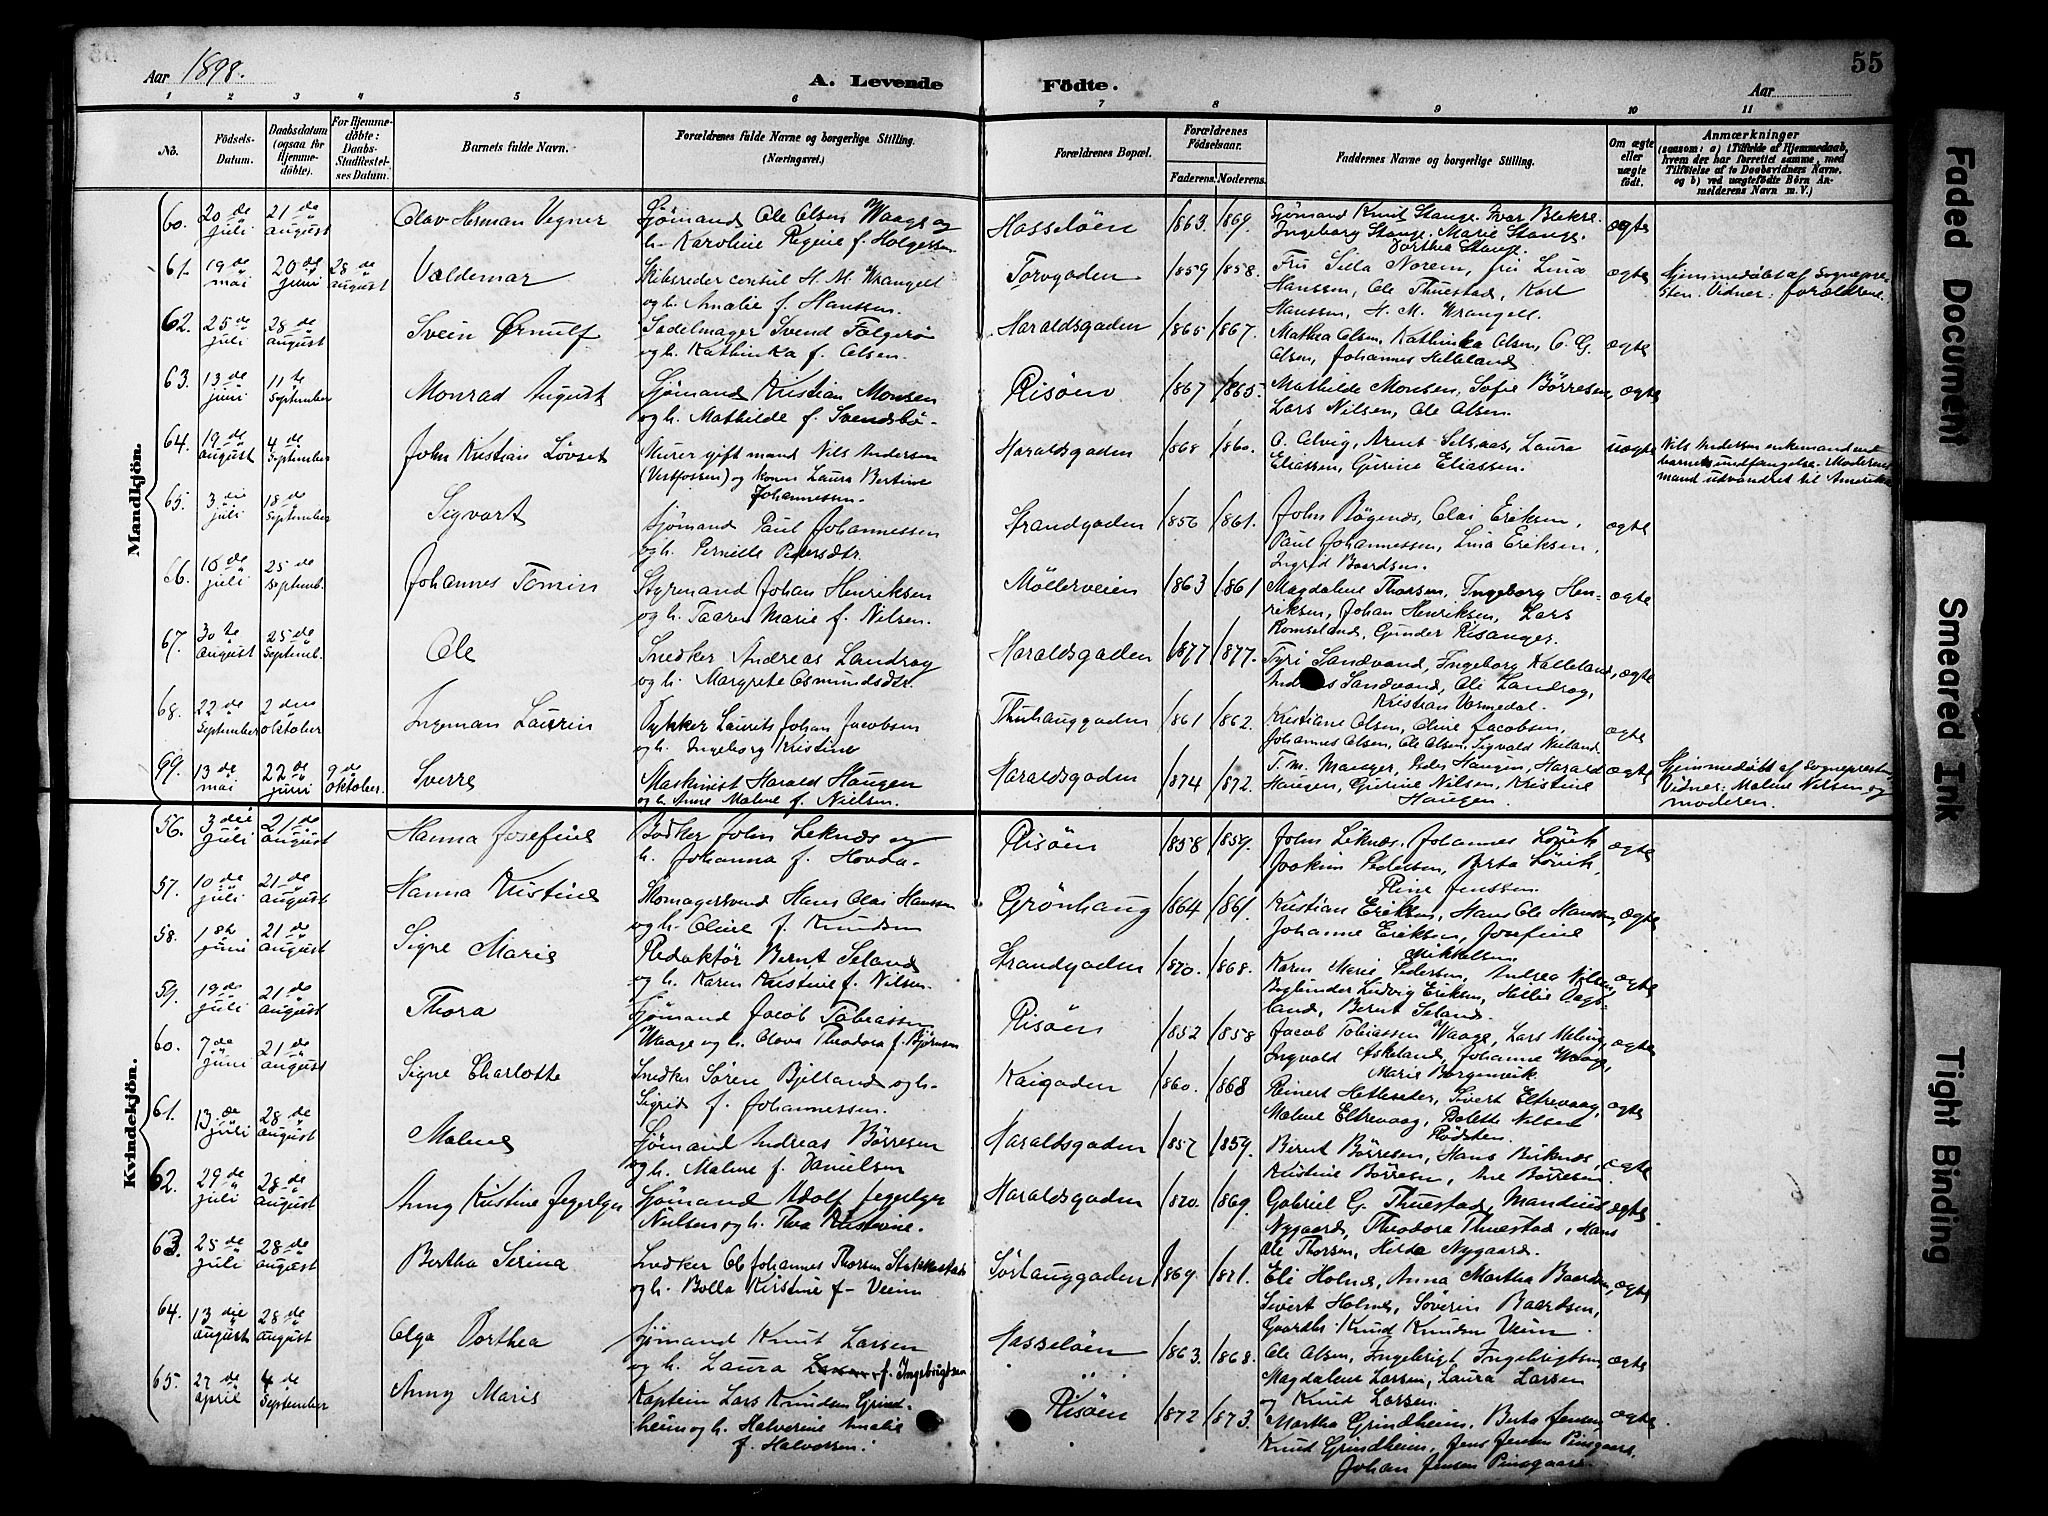 55
Aar 1898.
A. Levende
Födte.
Aar
1 2 3 4 5 6 7 8 9 10 11
No.
Födsels-
Datum.
Daabsdatum
(ogsaa for
Hjemme-
döbte).
For Hjemme-
döbte:
Daabs-
Stadfæstel-
ses Datum.
Barnets fulde Navn.
Forældrenes fulde Navne og borgerlige Stilling.
(Næringsvei.)
Forældrenes Bopæl.
Forældrenes
Födselsaar.
Faderens. Moderens.
Faddernes Navne og borgerlige Stilling.
Om ægte
eller
uægte
födt.
Anmærkninger
(saasom: a) i Tilfælde af Hjemmedaab,
hvem der har forrettet samme, med
Tilföielse af to Daabsvidners Navne.
og b) ved uægtefödte Börn An-
melderens Navn m. V.)
Mandkjön.
60. 20de juli 21de august Olav Herman Vegner
Sjömand Ole Olsen Waage og
h. Karoline Regine f. Holgersen
Hasselöen 1863. 1869.
Sjömand Knut Stange. Ivar Blekse.
Ingeborg Stange. Marie Stange.
Dorthea Stange.
ægte
61. 19de mai 20de juni 28de august Valdemar
Skibsreder consul H. M. Wrangell
og h. Amalie f. Hanssen.
Torvgaden 1859 1858.
Fru Silla Norem, fru Lina
Hanssen, Ole Thuestad, Karl
Hanssen, H. M. Wrangell.
ægte
Hjemmedöbt af Sognepre-
sten. Vidner: forældrene.
62. 25de juli 28de august Svein Ørnulf
Sadelmager Svend Falgerø
og h. Kathinka f. Olsen.
Haraldsgaden 1865 1867.
Mathea Olsen, Kathinka Olsen, C. G.
Olsen, Johannes Helleland
ægte
63. 13de juni 11te September Monrad August
Sjömand Kristian Monsen
og h. Mathilde f. Svendsbö.
Risöen 1867 1865.
Mathilde Monsen, Sofie Börresen,
Lars Nilsen, Ole Olsen.
ægte
64. 19de august 4de September John Kristian Lövset
Murer gift mand Nils Andersen
(Vestfossen) og kone Laura Bertine
Johannessen.
Haraldsgaden 1868 1860.
O. Alvig, Arent Selsaas, Laura
Eliassen, Gurine Eliassen.
uægte
Nils Andersen enkemand ved
barnets undfangelse. Moderens
mand udvandret til Amerika
65. 3die juli 18de September Sigvart
Sjömand Paul Johannessen
og h. Pernille Pedersdtr.
Strandgaden 1856 1861.
John Bögenes, Olai Eriksen,
Paul Johannessen, Lina Eriksen,
Ingrid Baardsen.
ægte
66. 16de juli 25de Septemb. Johannes Tomin
Styrmand Johan Henriksen
og h. Taaren Marie f. Nilsen.
Möllerveien 1863 1861
Magdalene Thorsen, Ingeborg Hen-
riksen, Johan Henriksen, Lars
Romseland, Gunder Risanger.
ægte
67. 30te august 25de Septemb. Ole
Snedker Andreas Landrag
og h. Margrete Osmundsdtr.
Haraldsgaden 1877 1877.
Tyri Sandvand, Ingeborg Kalleland,
Andreas Sandvand, Ole Landrag,
Kristian Vormedal.
ægte
68. 22de September 2den oktober Ingman Laurin
Dykker Laurits Johan Jacobsen
og h. Ingeborg Kristine
Thuhauggaden 1861 1862.
Kristiane Olsen, Oline Jacobsen,
Johannes Olsen, Ole Olsen, Sigvald Neiland.
ægte
69. 13de mai 22de juni 9de oktober. Sverre
Maskinist Harald Haugen
og h. Anne Malene f. Nielsen.
Haraldsgaden 1874 1872.
T. M. Manger, Peder Haugen, Harald
Haugen, Gurine Nilsen, Kristine
Haugen.
ægte
Hjemmedöbt af Sognepresten,
Vidner: Malene Nilsen og
moderen.
Kvindekjön.
56. 3die juli 21de august Hanna Josefine
Bödker John Leknæs og
h. Johanna f. Hovda.
Risöen 1858 1859.
John Leknæs, Johannes Lövik
Joakim Pedersen, Berta Lövik,
Rine Jenssen.
ægte
57. 10de juli 21de august Hanna Kristine
Skomagersvend Hans Olai Hanssen
og h. Oline f. Knudsen
Grönhaug 1864 1861.
Kristian Eriksen, Hans Ole Hanssen,
Johanne Eriksen, Josefine
Mikkelsen
ægte
58. 18de juni 21de august Signe Marie
Redaktör Bernt Seland
og h. Karen Kristine f. Nilsen.
Strandgaden 1870. 1868.
Karen Marie Pedersen, Andrea Nilsen,
Buglunder Ludvig Eriksen, Hellie Dags-
land, Bernt Seland.
ægte
59. 19de juli 21de august Thora
Sjömand Jacob Tobiassen
Waage og h. Olava Theodora f. Björnsen
Risöen 1852 1858
Jacob Tobiassen Waage, Lars Meling,
Ingvald Askeland, Johanne Waage,
Marie Borgenvik.
ægte
60. 7de juni 21de august Signe Charlotte
Snedker Sören Bjelland og h.
Sigrid f. Johannessen.
Kaigaden 1860. 1868
Reinert Hetleseter, Sivert Eltrevaag,
Malene Eltrevaag, Bolette Nilsen
Rödsten.
ægte
61. 13de juli 28de august Malene
Sjömand Andreas Börresen
og h. Malene f. Danielsen
Haraldsgaden 1857 1859.
Bernt Börresen, Hans Birknes,
Kristine Börresen, Ane Börresen.
ægte
62. 29de juli 28de august Anny Kristine Jegerlyer
Sjömand Adolf Jegerlyer
Nielsen og h. Thea Kristine.
Haraldsgaden 1870. 1869.
Gabriel G. Thuestad, Mandius
Nygaard, Theodora Thuestad, Hans
Ole Thorsen, Helda Nygaard.
ægte
63. 25de juli 28de august Bertha Serina
Snedker Ole Johannes Thorsen Stakkestad
og h. Bolla Kirstine f. Veim
Sörhauggaden 1869. 1871.
Eli Holme, Anna Martha Baardsen,
Sivert Holme, Söverin Baardsen,
Gaardbr. Knud Knudsen Veim.
ægte
64. 13die august 28de august Olga Dorthea
Sjömand Knut Larsen
og h. Laura f. Ingebrigtsen
Hasselöen 1863. 1868.
Ole Olsen, Ingebrigt Ingebrigtsen,
Magdalene Larsen, Laura Larsen
og Knud Larsen.
ægte
65. 27de april 4de September Anny Marie
Kaptein Lars Knudsen Grind-
heim og h. Halverine Amalie
f. Halvorsen.
Risöen 1872 1873.
Martha Grindheim, Berta Jensen,
Knud Grindheim, Jens Jensen Pinsgaard,
Johan Jensen Pinsgaard.
ægte
Faded Document
Smeared Ink
Tight Binding